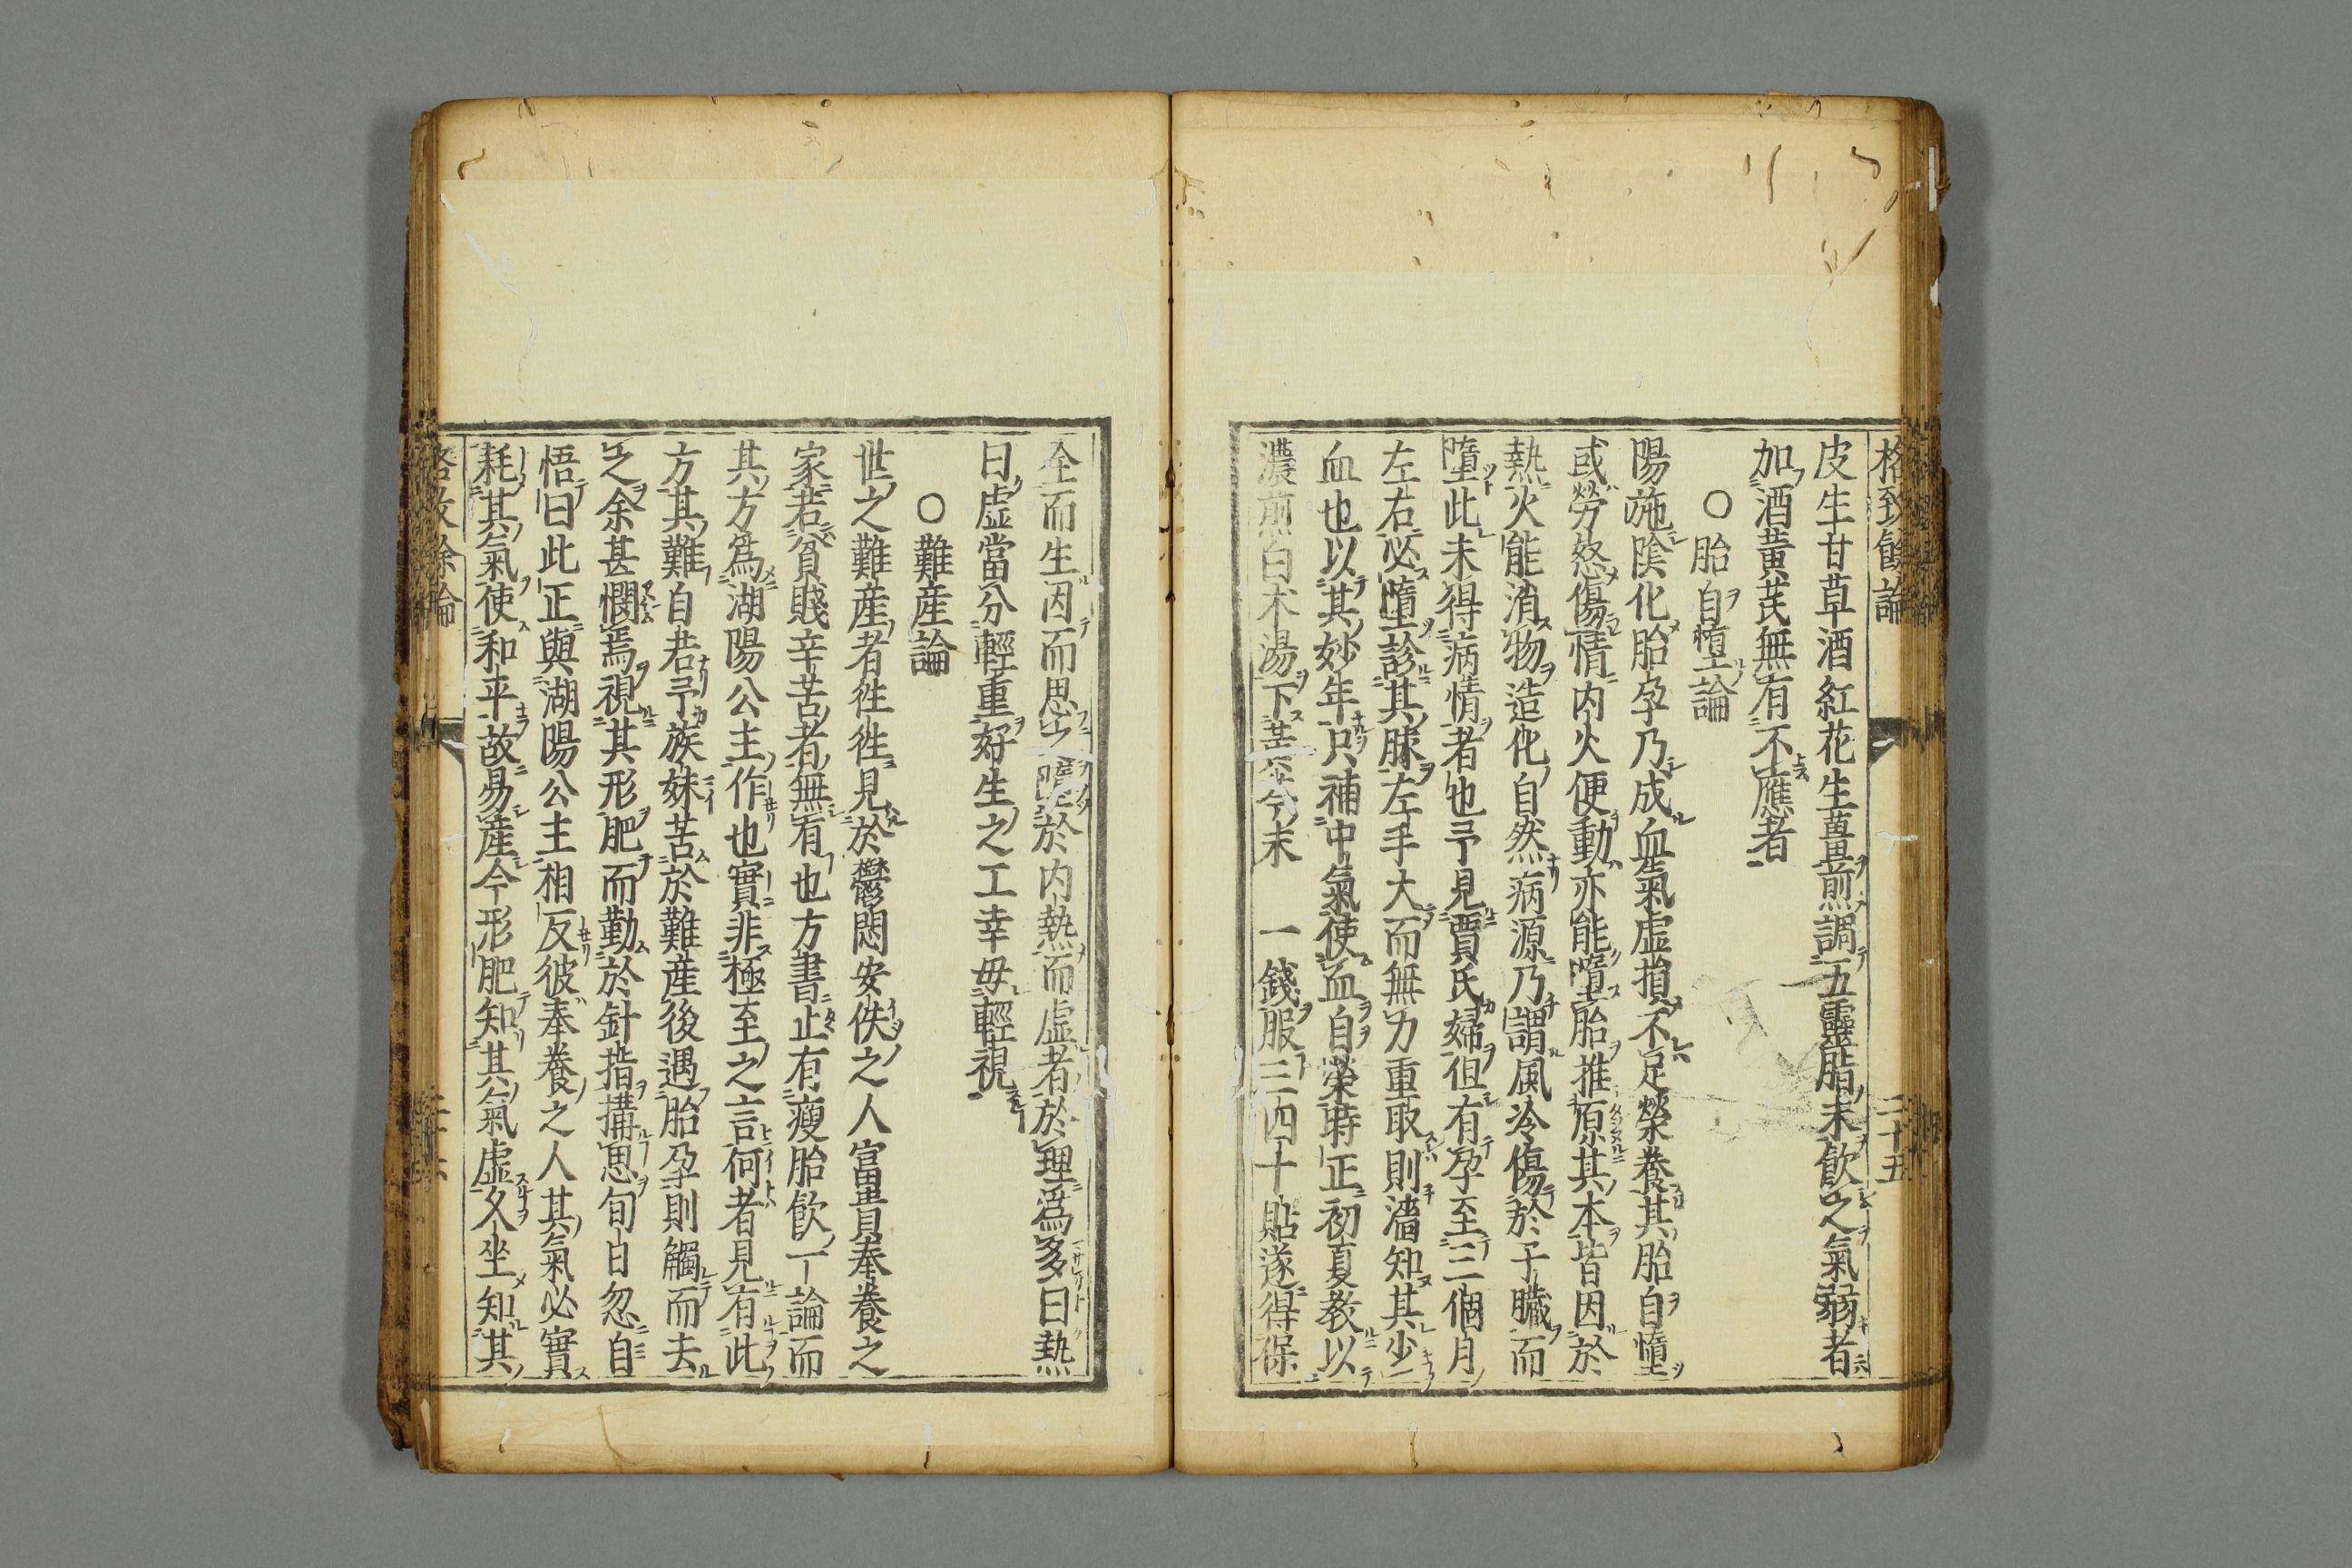 格致餘論 二十五
皮生甘草酒紅花生薑煎調五靈脂末飲之氣弱者
加酒黃芪無有不應者
○胎自墮論
陽施陰化胎孕乃成血氣虛損不足榮養其胎自墮
或勞怒傷情内火便動亦能墮胎推原其本皆因於
熱火能消物造化自然病源乃謂風冷傷於子臟而
墮此未得病情者也予見賈氏婦但有孕至三個月
左右必墮診其脉左手大而無力重取則濇知其少
血也以其妙年只補中氣使血自榮時正初夏教以
濃煎白朮湯下芩末一錢服三四十貼遂得保
全而生因而思之墮於内熱而虛者於理爲多曰熱
曰虛當分輕重好生之工幸毋輕視
○難産論
世之難産者徃徃見於鬱悶安佚之人富貴奉養之
家若貧賤辛苦者無有也方書止有瘦胎飲一論而
其方爲湖陽公主作也實非極至之言何者見有此
方其難自若予族妹苦於難産後遇胎孕則觸而去
之余甚憫焉視其形肥而勤於針指搆思旬日忽自
悟曰此正與湖陽公主相反彼奉養之人其氣必實
耗其氣使和平故易産今形肥知其氣虛久坐知其
格致餘論